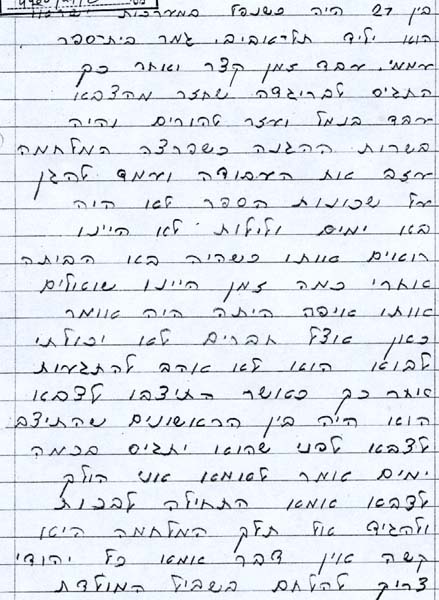 בין 27 היה כשנפל במערכות ישראל
הוא יליד תל-אביב. גמר בית-ספר
עממי. עבד זמן קצר ואחר כך
התגיס לבריגדה שחזר מהצבא
עבד בנמל ועזר להורים והיה
בשרות ההגנה כשפרצה המלחמה
עזב את העבודה ועמד להגן
על שכונות הספר לא היה
בא ימים ולילות לא היינו
רואים אותו כשהיה בא הביתה
אחרי כמה זמן היינו שואלים
אותו איפה היתה היה אומר
כאן אצל חברים לא יכולתי
לבוא הוא לא אהב להתגעות
אחר כך כאשר התיצבו לצבא
הוא היה בין הראשונים שהתיצב
לצבא לפני שהוא יתגיס בכמה
ימים אומר לאמא אני הולך
לצבא אמא התחילה לבכות
ולהגיד אל תלך המלחמה היא
קשה אין דבר אמא כל יהודי
צריך להלחם בשביל המולדת